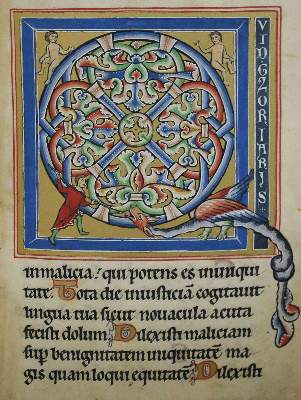 Q
VID GLORIARIS
inmalicia! qui potens es ininiqui
tate. Tota die iniusticiam cogitauit
lingua tua sicut nouacula acuta
fecisti dolum. Dilexisti maliciam
sup benignitatem iniquitatē ma
gis quam loqui equitatē. Dilexisti